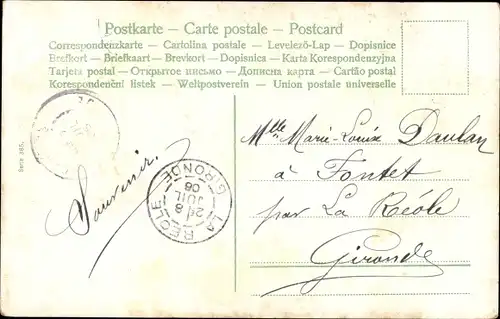 Postkarte – Carte postale – Postcard
Correspondenzkarte – Cartolina postale – Levelező-Lap – Dopisnice
Brefkort – Briefkaart – Brevkort – Dopisnica – Karta Korespondenzyjna
Tarjeta postal – Открытое письмо – Дописна карта – Cartão postal
Korespondenční lístek – Weltpostverein – Union postale universelle
Serie 245.
Souvenir.
LA RÉOLE
GIRONDE
8
24
JUIL
06
Mlle Marie-Louise Daulan
à Fontet
par La Réole
Gironde